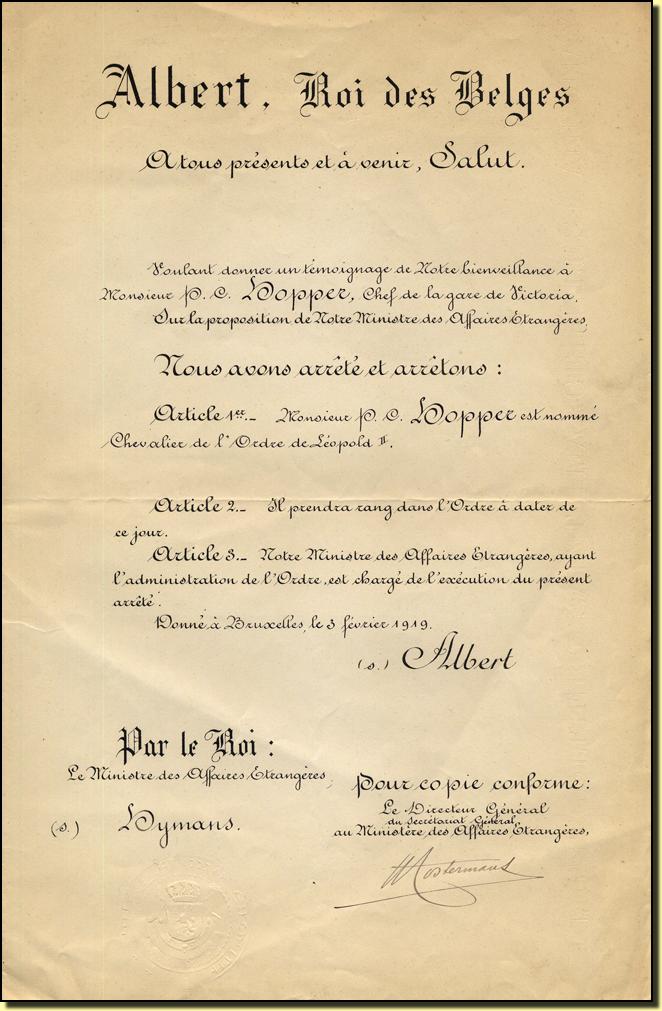 Albert, Roi des Belges
A tous présents et à venir, Salut.
Voulant donner un témoignage de Notre bienveillance à
Monsieur P. C. Hopper, Chef de la gare de Victoria,
Sur la proposition de Notre Ministre des Affaires Etrangères,
Nous avons arrêté et arrêtons :
Article 1er._ Monsieur P. C. Hopper est nommé
Chevalier de l'Ordre de Léopold II.
Article 2._ Il prendra rang dans l'Ordre à dater de
ce jour.
Article 3._ Notre Ministre des Affaires Etrangères, ayant
l'administration de l'Ordre, est chargé de l'exécution du présent
arrêté.
Donné à Bruxelles, le 3 février 1919.
(s.) Albert
Par le Roi :
Le Ministre des Affaires Etrangères,
(s.) Hymans.
Pour copie conforme :
Le Directeur Général
du Secrétariat Général
au Ministère des Affaires Etrangères,